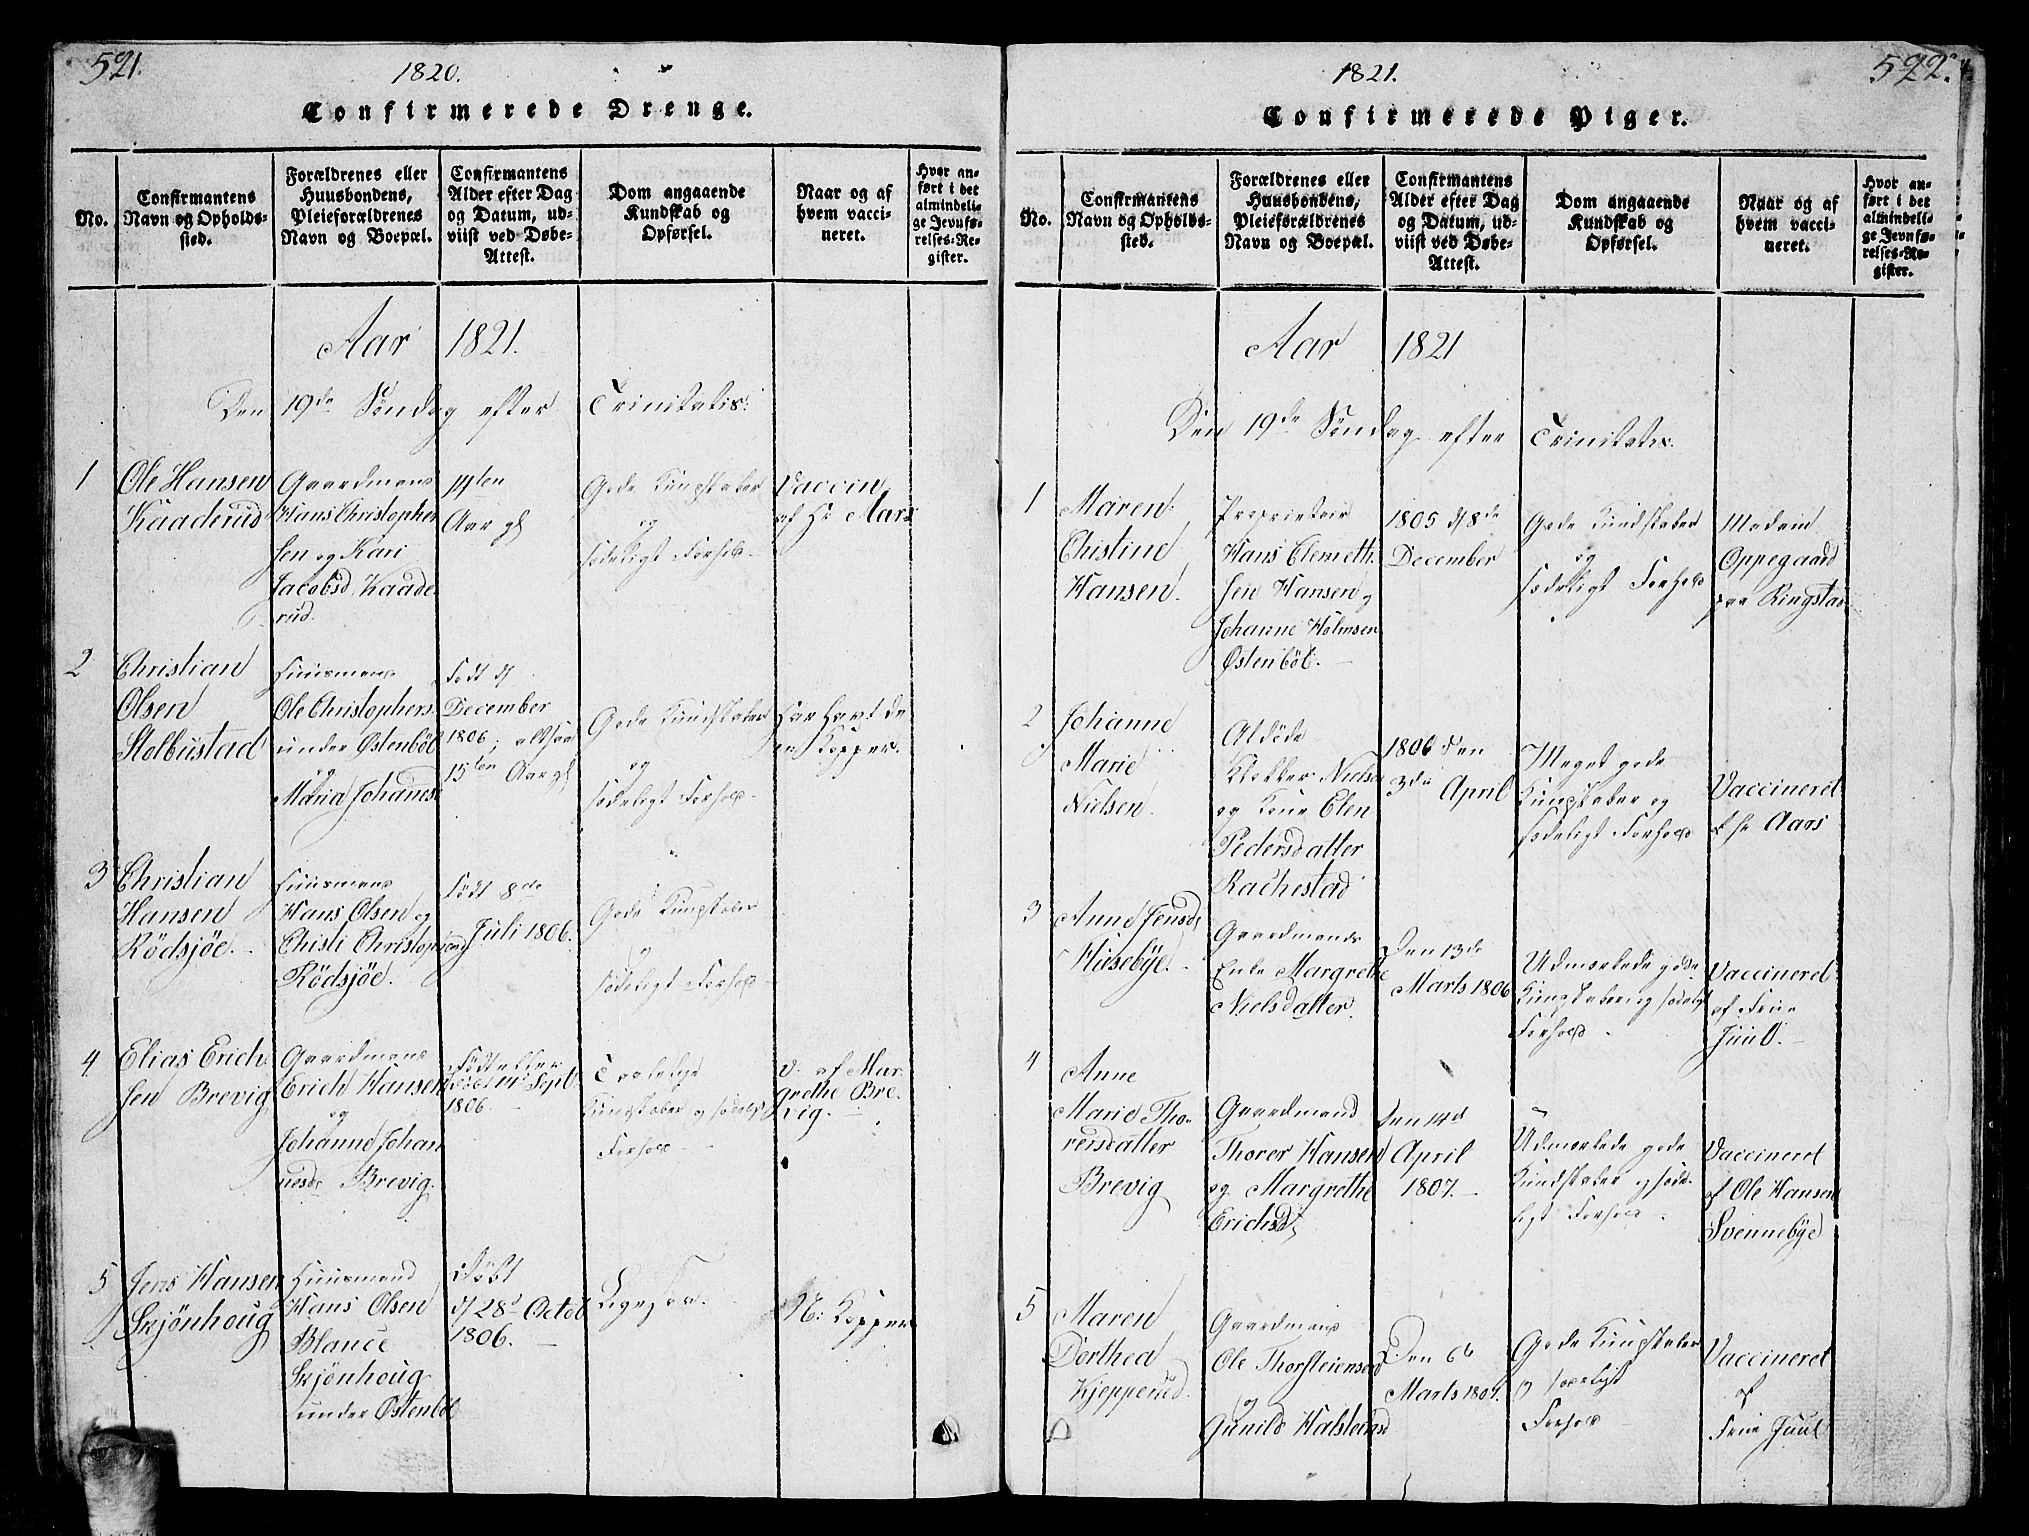 521.
1820.
Confirmerede Drenge.
No.
Confirmantens
Navn og Opholds-
sted.
Forældrenes eller
Huusbondens,
Pleieforældrenes
Navn og Boepæl.
Confirmantens
Alder efter Dag
og Datum, ud-
viist ved Døbe-
Attest.
Dom angaaende
Kundskab og
Opførsel.
Naar og af
hvem vacci-
neret.
Hvor an-
ført i det
almindeli-
ge Jevnfø-
relses-Re-
gister.
Aar 1821.
Den 19de Søndag efter Trinitatis:
1
Ole Hansen
Kaaderud
Gaardmand
Hans Christopher
sen og Kari
Jacobsd Kaade
rud.
14ten
Aar gl
Gode Kundskaber
og
sædeligt Forhold
Vaccin.
af Hr Aars
2
Christian
Olsen
Stolbustad
Huusmand
Ole Christophers.
under Østenböl
og
Maria Johansd
Født d/
December
1806, altsaa
15ten Aar gl
Gode Kundskaber
og
sædeligt Forhold
Har Havt de
Kopper.
3
Christian
Hansen
Rödsjöe.
Huusmand
Hans Olsen og
Christi Christoph
Rödsjöe.
Födt 8de
Juli 1806.
Gode Kundskaber
og
sædeligt Forhold
4
Elias Erich
sen Brevig
Gaardmand
Erich Hansen
og
Johanne Johan
nesdr Brevig.
Födt eller
Döbt 14 Septb
1806.
Taalelige
Kundskaber og sædeligt
Forhold
v. af Mar
grethe Bre
vig.
5
Jens Hansen
Skjönhoug
Huusmand
Hans Olsen
Blance
Skjönhoug
under Østenböl
Döbt
d/ 28d Octob
1806.
Ligesom.
N: Kopper
522.
1821.
Confirmerede Piger.
No.
Confirmantens
Navn og Opholds-
sted.
Forældrenes eller
Huusbondens,
Pleieforældrenes
Navn og Boepæl.
Confirmantens
Alder efter Dag
og Datum, ud-
viist ved Døbe-
Attest.
Dom angaaende
Kundskab og
Opførsel.
Naar og af
hvem vacci-
neret.
Hvor an-
ført i det
almindeli-
ge Jevnfø-
relses-Re-
gister.
Aar 1821
Den 19de Søndag efter Trinitatis.
1
Maren
Christine
Hansen.
Proprietair
Hans Clemeth
sen Hansen og
Johanne Holmsen
Østenböl.
1805 d/ 8de
December
Gode Kundskaber
og
sædeligt Forhold
Madam
Oppegaard
paa Ringstad
2
Johanne
Marie
Nielsen.
Afdöde
Klokker Nielsen
og Kone Elen
Pedersdatter
Rachestad
1806 den
3de April
Meget gode
Kundskaber og
sædeligt Forhold
Vaccineret
af hr Aars
3
Anne Jensd
Husebye.
Gaardmands
Enke Margrethe
Nielsdatter.
Den 13de
Marts 1806
Udmærkede gode
Kundskaber og sædeligt
Forhold
Vaccineret
af Frue
Juul.
4
Anne
Marie Tho
rersdatter
Brevig
Gaardmand
Thorer Hansen
og Margrethe
Erichsd
Den 14d
April
1807.
Udmærkede gode
Kundskaber og sæde
ligt Forhold
Vaccineret
af Ole Hansen
Svennebye
5
Maren
Dorthea
Kjepperud.
Gaardmand
Ole Thorsteiensen
og
Gunild Halsteinsd
Den 6te
Marts 1807.
Gode Kundskaber
og
Forhold
Vaccineret
af
Frue Juul